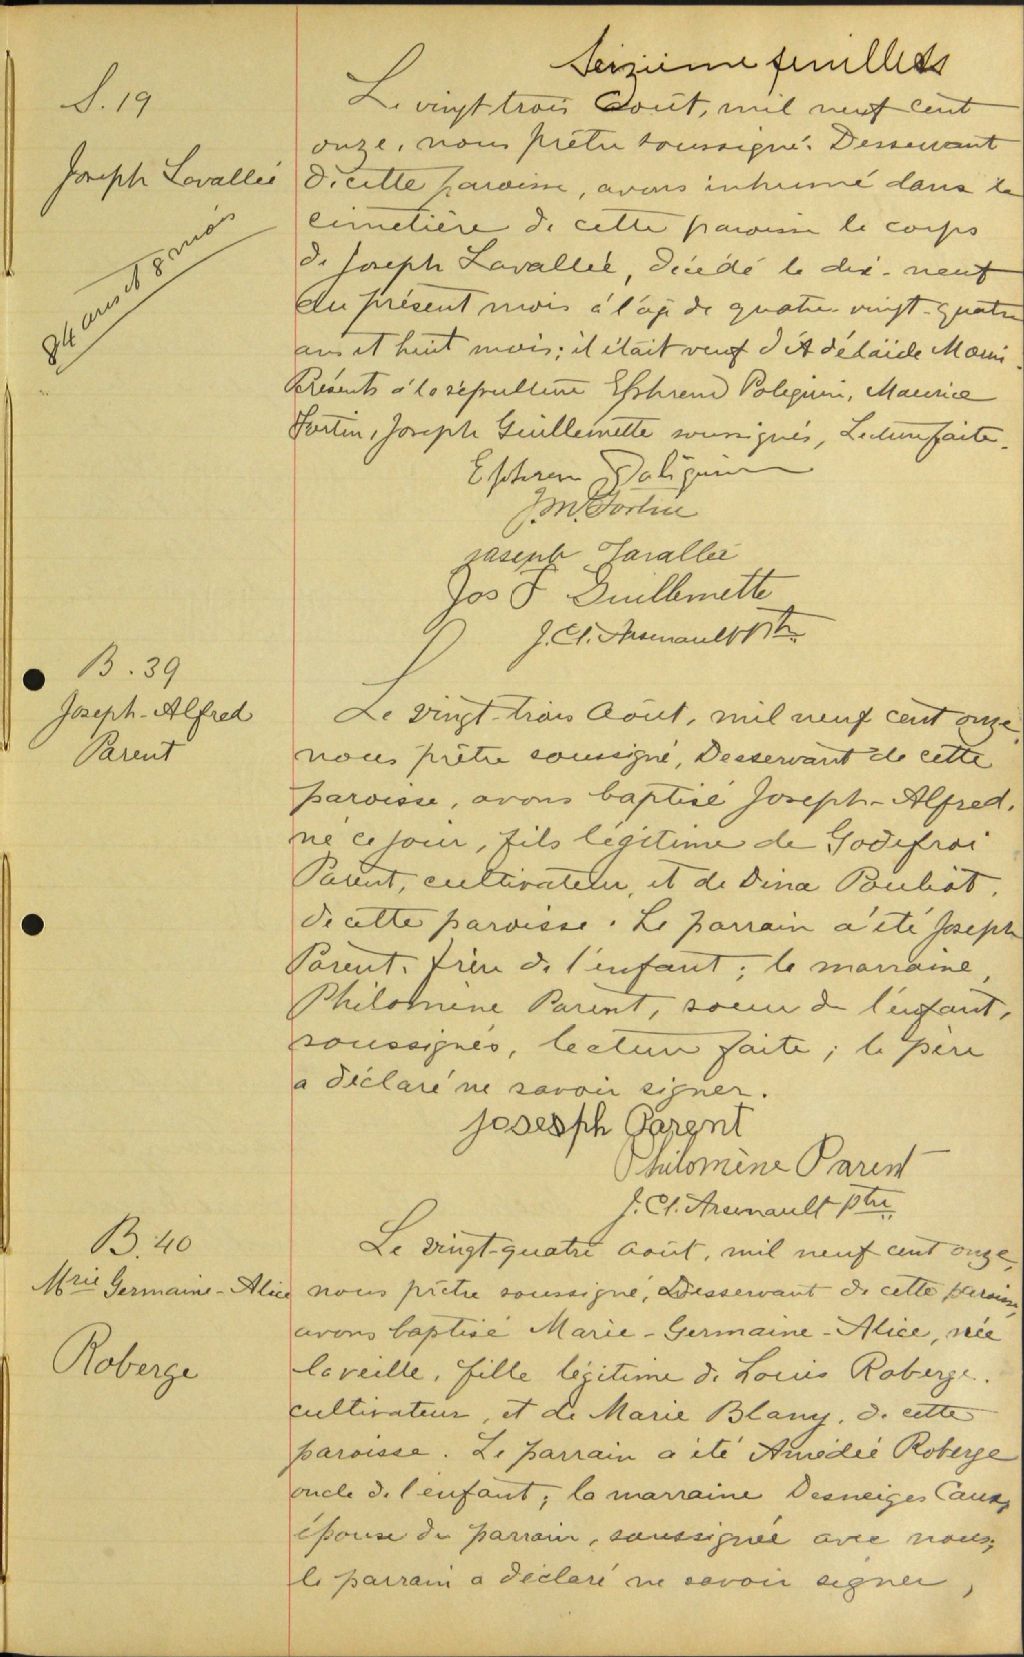 Seizième feuillets
S. 19
Joseph Lavallée
84 ans et 8 mois
Le vingt trois Août, mil neuf cent
onze, nous prêtre soussigné, Desservant
de cette paroisse, avons inhumé dans le
cimetière de cette paroisse le corps
de Joseph Lavallée, décédé le dix-neuf
du présent mois à l'âge de quatre-vingt-quatre
ans et huit mois; il était veuf d'Adélaïde
Présents à la sépulture Ephrem Poliquin, Maurice
Fortin, Joseph Guillemette soussignés, Lecture faite.
Ephrem Poliquin
J.M. Fortin
Joseph Lavallée
Jos F Guillemette
J. Cl. Arsenault Ptre
B. 39
Joseph-Alfred
Parent
Le vingt-trois Août, mil neuf cent onze,
nous prêtre soussigné, Desservant de cette
paroisse, avons baptisé Joseph-Alfred,
né ce jour, fils légitime de Godefroi
Parent, cultivateur, et de Dina Pouliot,
de cette paroisse. Le parrain a été Joseph
Parent, frère de l'enfant; la marraine,
Philomène Parent, soeur de l'enfant,
soussignés, lecture faite; le père
a déclaré ne savoir signer.
Josesph Parent
Philomène Parent
J. Cl. Arsenault Ptre
B. 40
Mrie Germaine-Alice
Roberge
Le vingt-quatre Août, mil neuf cent onze,
nous prêtre soussigné, Desservant de cette paroisse,
avons baptisé Marie-Germaine-Alice, née
la veille, fille légitime de Louis Roberge,
cultivateur, et de Marie Blany, de cette
paroisse. Le parrain a été Amédée Roberge
oncle de l'enfant; la marraine Desneiges Caux,
épouse du parrain, soussignée avec nous;
le parrain a déclaré ne savoir signer,